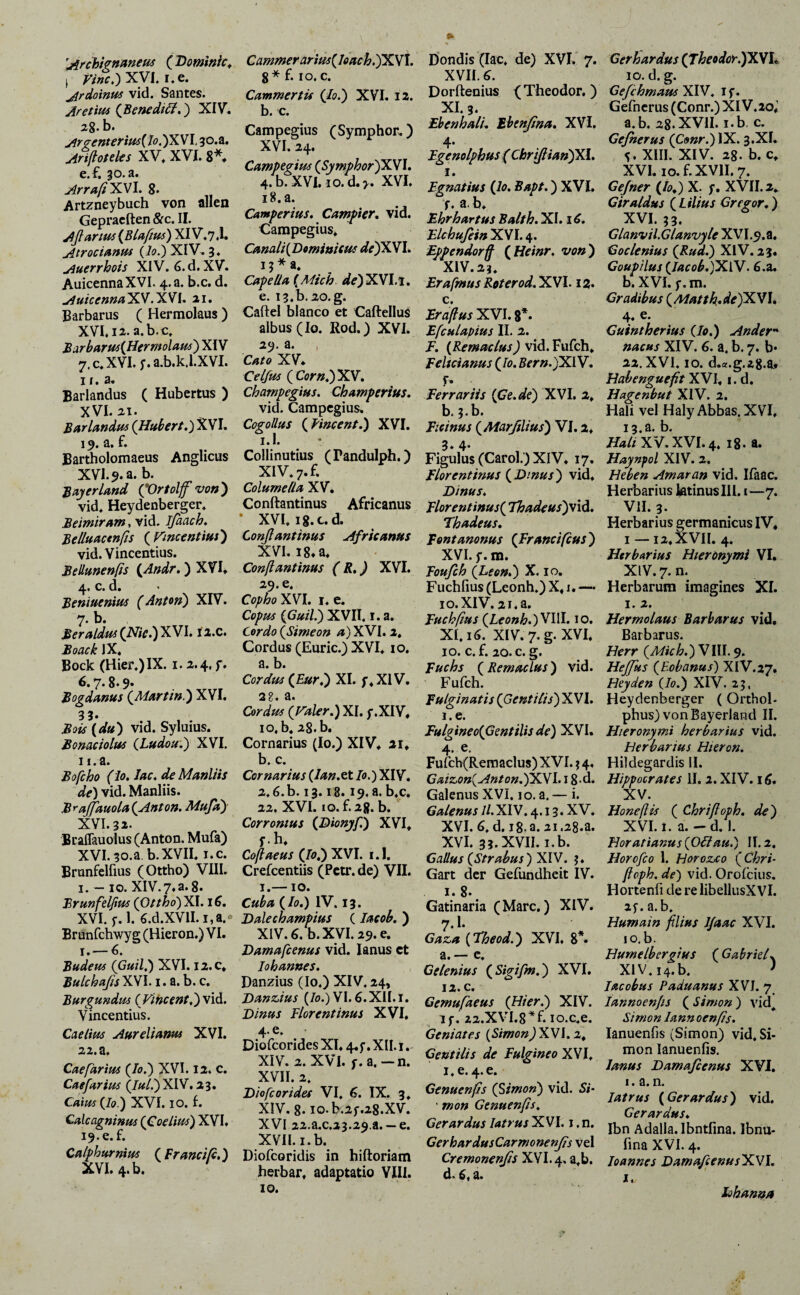 Archignaneus (Dominic.
Vinc.) XVI. 1. e.
Ardoinus vid. Santes.
Aretius (Benedict.) XIV.
28. b.
Argenterius(Io.)XVI.30.a.
Aristoteles XV. XVI. 8*.
e. f. 30. a.
Arrasi XVI. 8.
Artzneybuch von allen
Gepraesten &c. II.
Astarius (Blasius) XIV.7.l.
Atrocianus (Io.) XIV. 3.
Auerrhois XIV. 6. d. XV.
Auicenna XVI. 4. a. b.c. d.
Auicenna XV. XVI. 21.
Barbarus ( Hermolaus )
XVI. 12. a. b. c.
Barbarus(Hermolaus) XIV
7. c. XVI. 5. a.b.k.l.XVI.
11. a.
Barlandus ( Hubertus )
XVI. 21.
Barlandus (Hubert.) XVI.
19. a. f.
Bartholomaeus Anglicus
XVI.9. a. b.
Bayerland (Ortolff von)
vid. Heydenberger.
Beimiram, vid. Isaach.
Belluacensis (Vincentius)
vid. Vincentius.
Bellunensis (Andr.) XVI.
4. c. d.
Beniuenius (Anton) XIV.
7. b.
Beraldus (Nic.) XVI. 12.c.
Boack IX.
Bock (Hier.) IX. 1. 2. 4. 5.
6. 7. 8. 9.
Bogdanus (Martin.) XVI.
33.
Bois (du) vid. Syluius.
Bonaciolus (Ludou.) XVI.
11. a.
Boscho (Io. Iac. de Manliis
de) vid. Manliis.
Brassauola (Anton. Musa)
XVI. 32.
Brassauolus (Anton. Musa)
XVI. 30.a. b. XVII. 1. c.
Brunfelsius (Ottho) VIII.
1. – 10. XIV. 7. a. 8.
Brunfelsius (Ottho) XI. 16.
XVI. 5. l. 6.d.XVII. 1. a.
Brunschwyg (Hieron.) VI.
1. — 6.
Budeus (Guil.) XVI. 12. c.
Bulchasis XVI. 1. a. b. c.
Burgundus (Vincent.) vid.
Vincentius.
Caelius Aurelianus XVI.
22. a.
Caesarius (Io.) XVI. 12. c.
Caesarius (Iul.) XIV. 23.
Caius (Io.) XVI. 10. f.
Calcagninus (Coelius) XVI.
19. e. f.
Calphurnius (Francisc.)
XVI. 4. b.
Cammerarius(Ioach.)XVI.
8* f. 10. c.
Cammertis (Io.) XVI. 12.
b. c.
Campegius (Symphor.)
XVI. 24.
Campegius (Symphor) XVI.
4. b. XVI. 10. d. 5. XVI.
18. a.
Camperius. Campier. vid.
Campegius.
Canali(Dominicus de)XVI.
13* a.
Capella (Mich de) XVI. 1.
e. 13. b. 20. g.
Castel blanco et Castellus
albus (Io. Rod.) XVI.
29. a.
Cato XV.
Celsus (Corn.) XV.
Champegius. Champerius.
vid. Campegius.
Cogollus (Vincent.) XVI.
1. l.
Collinutius (Pandulph.)
XIV. 7. f.
Columella XV.
Constantinus Africanus
XVI. 18. c. d.
Constantinus Africanus
XVI. 18. a.
Constantinus (R.) XVI.
29. e.
Copho XVI. 1. e.
Copus (Guil.) XVII. 1. a.
Cordo (Simeon a) XVI. 2.
Cordus (Euric.) XVI. 10.
a. b.
Cordus (Eur.) XI. 5. XIV.
28. a.
Cordus (Valer.) XI. 5. XIV.
10. b. 28. b.
Cornarius (Io.) XIV. 21.
b. c.
Cornarius (Ian.et Io.) XIV.
2. 6. b. 13. 18. 19. a. b. c.
22. XVI. 10. f. 28. b.
Corronius (Dionys.) XVI.
5. h.
Costaeus (Io.) XVI. 1. l.
Crescentiis (Petr. de) VII.
1. — 10.
Cuba (Io.) IV. 13.
Dalechampius ( Iacob. )
XIV. 6. b. XVI. 29. e.
Damascenus vid. Ianus et
Iohannes.
Danzius (Io.) XIV. 24.
Danzius (Io.) VI. 6. XII. 1.
Dinus Florentinus XVI.
4. e.
Dioscorides XI. 4. 5. XII. 1.
XIV. 2. XVI. 5. a. — n.
XVII. 2.
Dioscorides VI. 6. IX. 3.
XIV. 8. 10. b.25.28.XV.
XVI 22.a.c.23.29.a. – e.
XVII. 1. b.
Dioscoridis in historiam
herbar. adaptatio VIII.
10.
Dondis (Iac. de) XVI. 7.
XVII. 6.
Dorstenius (Theodor.)
XI. 3.
Ebenhali. Ebenfina. XVI.
4.
Egenolphus (Christian)XI.
1.
Egnatius (Io. Bapt.) XVI.
5. a. b.
Ehrhartus Balth. XI. 16.
Elchufein XVI. 4.
Eppendorff (Heinr. von)
XIV. 23.
Erasmus Roterod. XVI. 12.
c.
Erastus XVI. 8*.
Esculapius II. 2.
F. (Remaclus) vid. Fusch.
Felicianus (Io. Bern.)XIV.
5.
Ferrariis (Ge. de) XVI. 2.
b. 3. b.
Ficinus (Marsilius) VI. 2.
3. 4.
Figulus (Carol.) XIV. 17.
Florentinus (Dinus) vid.
Dinus.
Florentinus(Thadeus)vid.
Thadeus.
Fontanonus (Franciscus)
XVI. 5. m.
Fousch (Leon.) X. 10.
Fuchsius (Leonh.) X. 1. —
10. XIV. 21. a.
Fuchsius (Leonh.) VIII. 10.
XI. 16. XIV. 7. g. XVI.
10. c. f. 20. c. g.
Fuchs (Remaclus) vid.
Fusch.
Fulginatis (Gentilis) XVI.
1. e.
Fulgineo(Gentilis de) XVI.
4. e.
Fusch(Remaclus) XVI. 34.
Gaizon(Anton.)XVI. 18.d.
Galenus XVI. 10. a. — i.
Galenus II. XIV. 4. 13. XV.
XVI. 6. d. 18. a. 21.28.a.
XVI. 33. XVII. 1. b.
Gallus (Strabus) XIV. 3.
Gart der Gesundheit IV.
1. 8.
Gatinaria (Marc.) XIV.
7. l.
Gaza (Theod.) XVI. 8*.
a. — e.
Gelenius (Sigism.) XVI.
12. c.
Gemusaeus (Hier.) XIV.
15. 22.XVI.8* f. 10.c.e.
Geniates (Simon) XVI. 2.
Gentilis de Fulgineo XVI.
1. e. 4. e.
Genuensis (Simon) vid. Si-
mon Genuensis.
Gerardus Iatrus XVI. 1. n.
GerhardusCarmonensis vel
Cremonensis XVI. 4. a.b.
d. 6. a.
Gerhardus (Theodor.)XVI.
10. d. g.
Geschmaus XIV. 15.
Gesnerus (Conr.) XIV.20.
a. b. 28. XVII. 1.b. c.
Gesnerus (Conr.) IX. 3.XI.
5. XIII. XIV. 28. b. c.
XVI. 10. f. XVII. 7.
Gesner (Io.) X. 5. XVII. 2.
Giraldus (Lilius Gregor.)
XVI. 33.
Glanvil.Glanvyle XVI.9.a.
Goclenius (Rud.) XIV. 23.
Goupilus (Iacob.)XIV. 6.a.
b. XVI. 5. m.
Gradibus (Matth. de)XVI.
4. e.
Guintherius (Io.) Ander-
nacus XIV. 6. a. b. 7. b.
22. XVI. 10. d.α.g.28.a.
Habenguefit XVI. 1. d.
Hagenbut XIV. 2.
Hali vel Haly Abbas. XVI.
13. a. b.
Hali XV. XVI. 4. 18. a.
Haynpol XIV. 2.
Heben Amaran vid. Isaac.
Herbarius latinus III. 1—7.
VII. 3.
Herbarius germanicus IV.
1 — 12. XVII. 4.
Herbarius Hieronymi VI.
XIV. 7. n.
Herbarum imagines XI.
1. 2.
Hermolaus Barbarus vid.
Barbarus.
Herr (Mich.) VIII. 9.
Hessus (Eobanus) XIV.27.
Heyden (Io.) XIV. 23.
Heydenberger (Orthol-
phus) von Bayerland II.
Hieronymi herbarius vid.
Herbarius Hieron.
Hildegardis II.
Hippocrates II. 2. XIV. 16.
XV.
Honestis ( Christoph. de)
XVI. 1. a. — d. l.
Horatianus (Octau.) II. 2.
Horosco l. Horozco (Chri-
stoph. de) vid. Oroscius.
Hortensi de re libellus XVI.
25. a. b.
Humain filius Isaac XVI.
10. b.
Humelbergius (Gabriel)
XIV. 14. b.
Iacobus Paduanus XVI. 7
Iannoensis (Simon) vid.
Simon Iannoensis.
Ianuensis (Simon) vid. Si-
mon Ianuensis.
Ianus Damascenus XVI.
1. a. n.
Iatrus (Gerardus) vid.
Gerardus.
Ibn Adalla. Ibntfina. Ibnu-
fina XVI. 4.
Ioannes Damascenus XVI.
1.
Iohanna